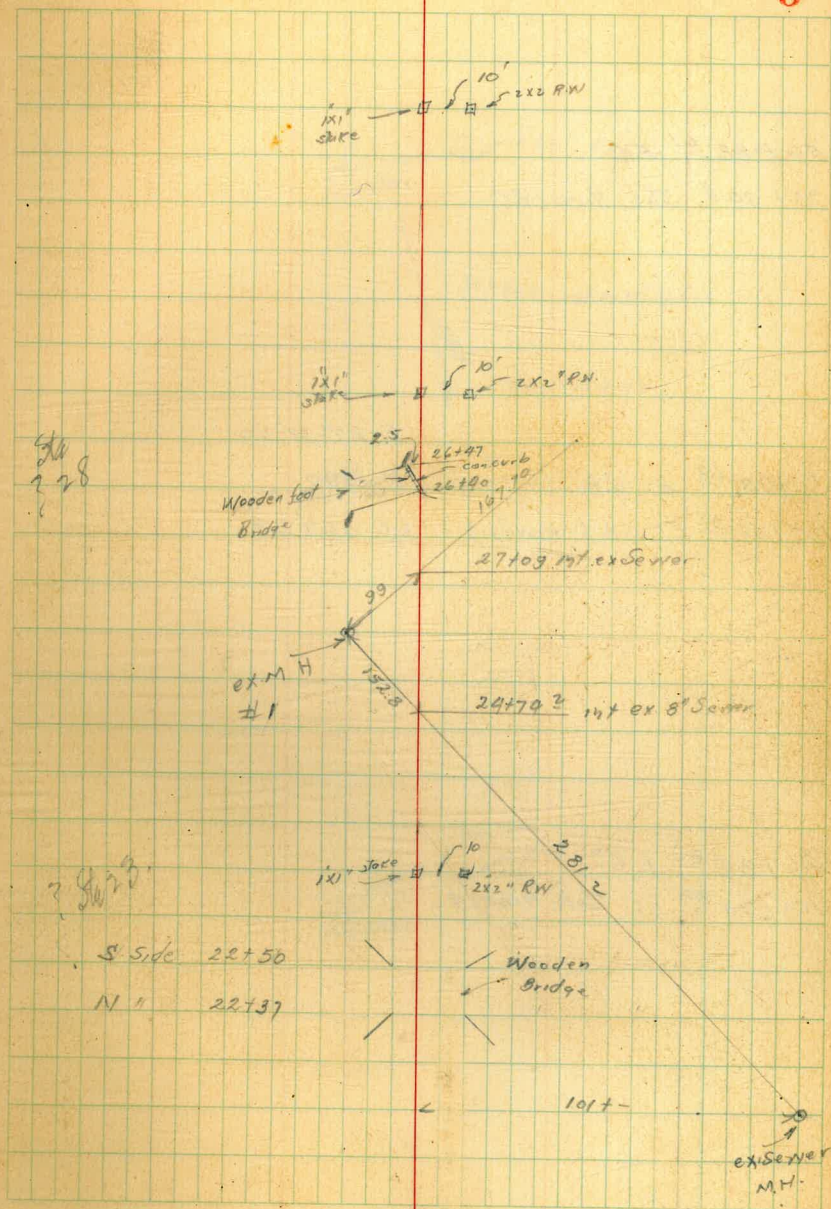 10'
1"x1" stake
2x2 R.W
1"x1" stake
10'
2x2" R.W.
Sta
? 28
2.5
26+47
con curb
26+40
Wooden foot
Bridge
27+09 int. ex Sewer
99
ex M H
#1
152.8
24+74 int ex 8" Sewer
281
? Sta 23
1x1" stake
10
2x2" RW
S Side 22+50
N " 22+37
Wooden
Bridge
101+-
ex. Sewer
M.H.